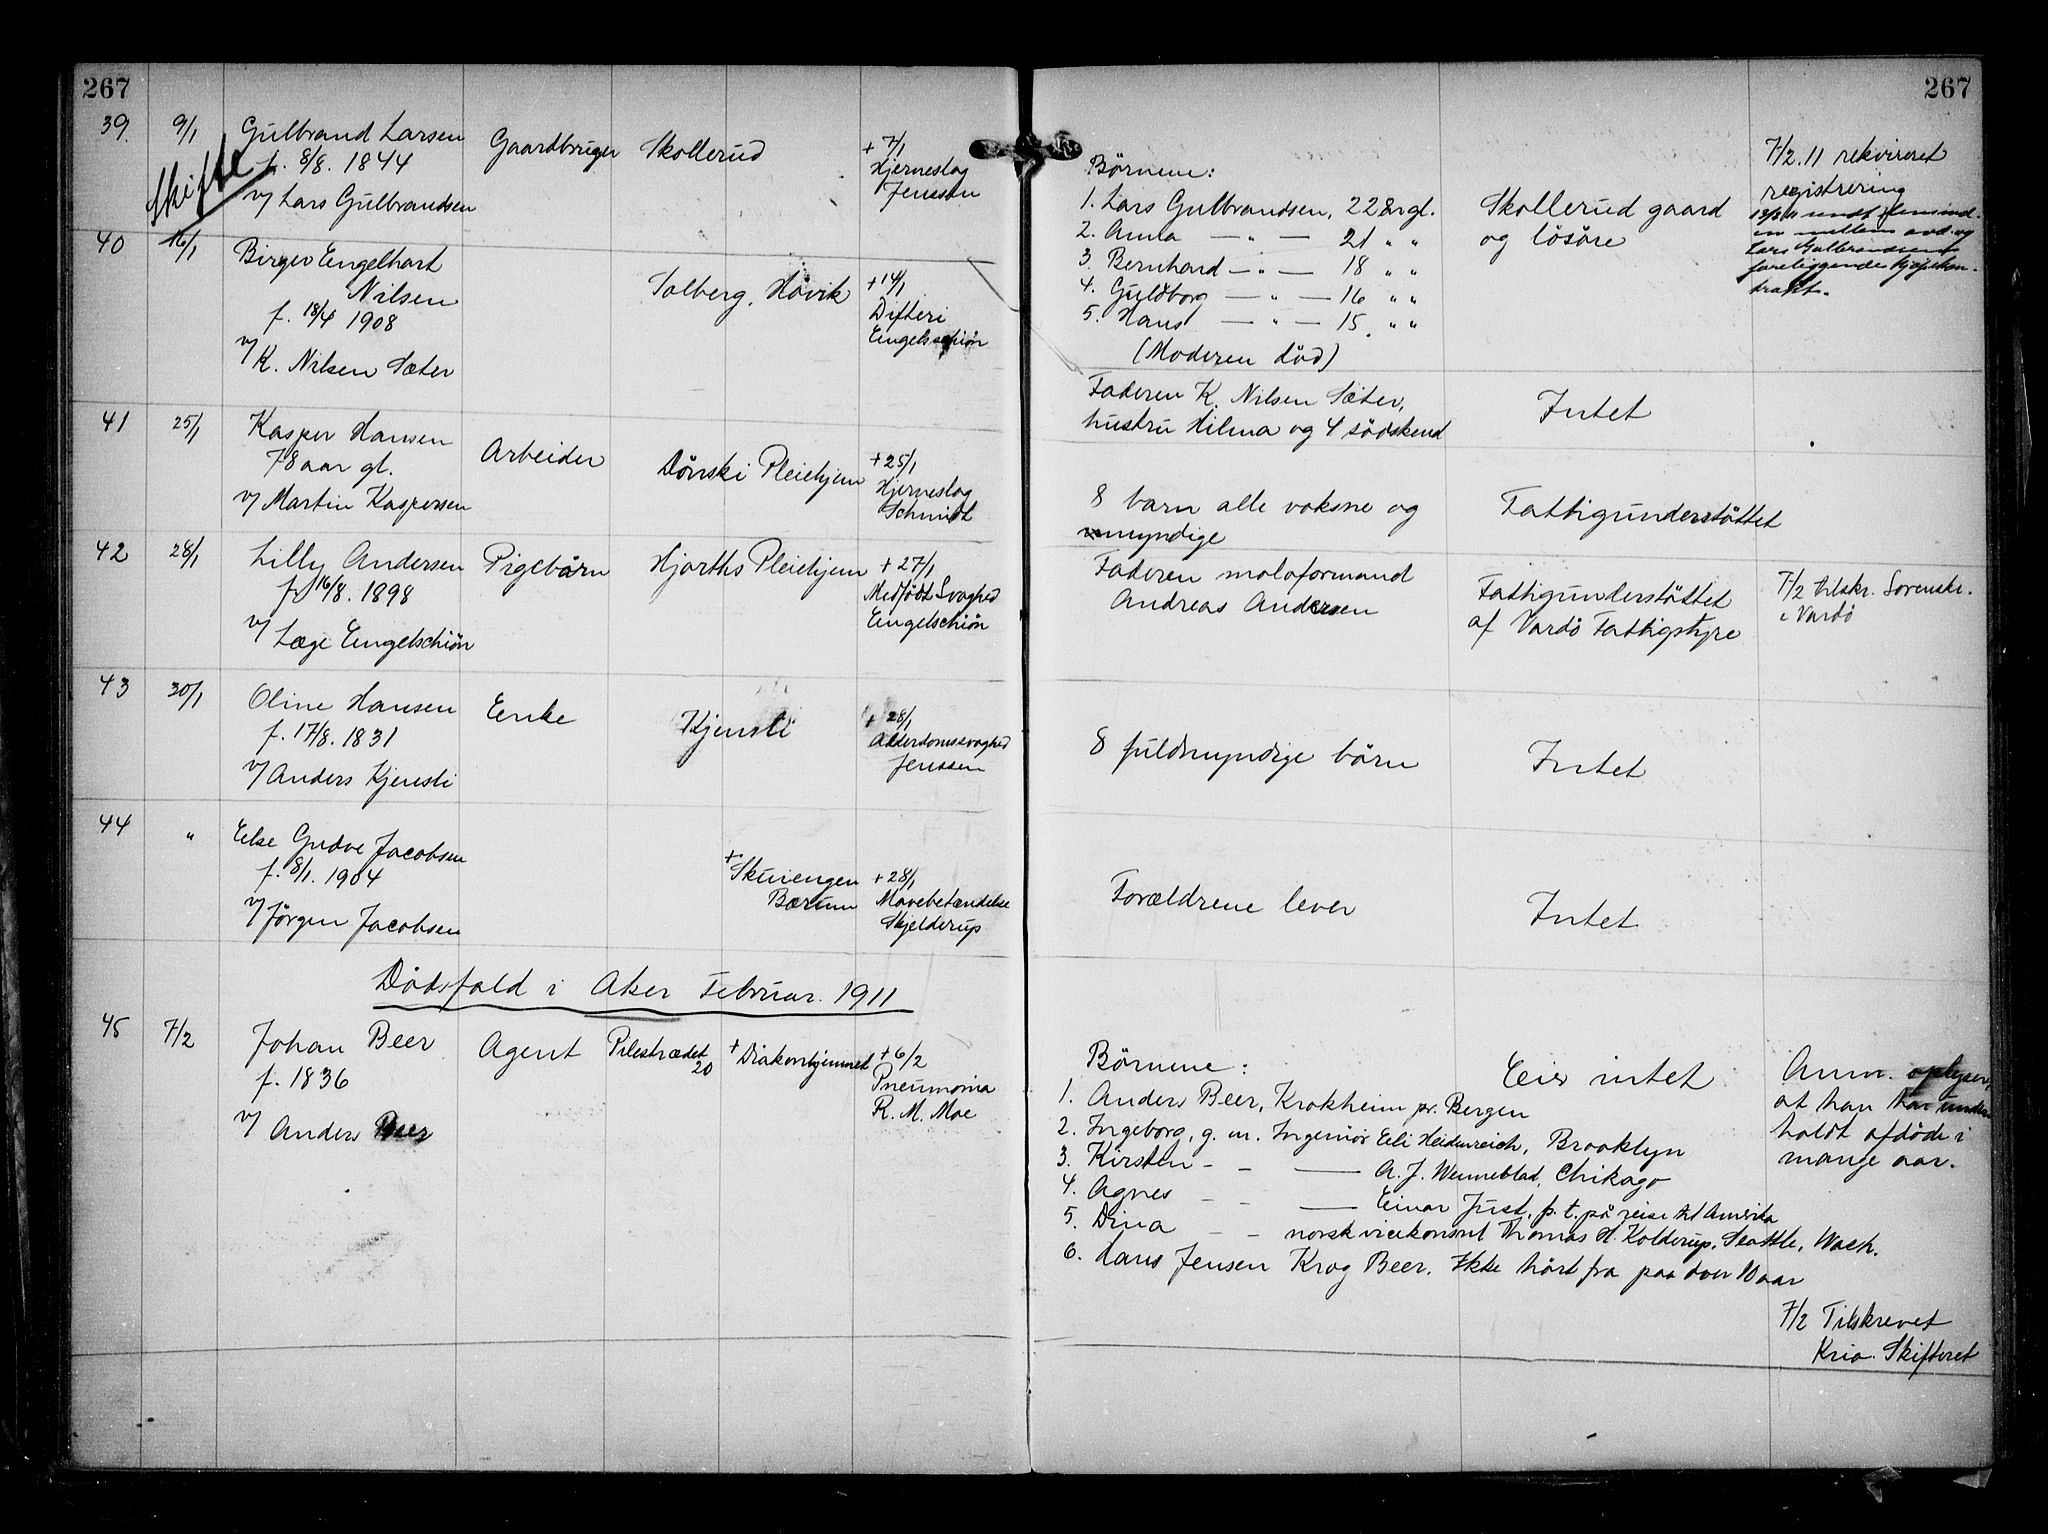 267
267
39.
9/1
Skifte
Gulbrand Larsen
f. 8/8. 1844
v/ Lars Gulbrandsen
Gaardbruger
Skollerud
+ 7/1
Hjerneslag
Jenssen
Börnene:
1. Lars Gulbrandsen, 22 aar gl.
2. Anna — " — 21 " "
3. Bernhard — " — 18 " "
4. Guldborg — " — 16 " "
5. Hans — " — 15 " "
(Moderen død)
Skollerud gaard
og lösöre
7/2. 11 rekvireret
registrering
sendt
mellem avd. og
Lars Gulbrandsen
foreliggende kjøpekon-
trakt.
40
16/1
Birger Engelhart
Nilsen
f. 18/4 1908
v/ K. Nilsen Sæter
Solberg, Hövik
+ 14/1
Difteri
Engelsschiön
Faderen K. Nilsen Sæter,
hustru Hilma og 4 södskend
Intet
41
25/1
Kasper Hansen
78 aar gl.
v/ Martin Kaspersen
Arbeider
Dönski Pleiehjem
+ 25/1
Hjerneslag
Schmidt
8 barn alle voksne og
myndige
Fattigunderstöttet
42
28/1
Lilly Andersen
f. 16/8. 1898
v/ Læge Engelschiön
Pigebarn
Hjorths Pleiehjem
+ 27/1
Medfödt Svaghed
Engelschiön
Faderen moloformand
Andreas Andersen
Fattigunderstöttet
af Vardö Fattigstyre
7/2 tilskr. Sorenskr.
i Vardö
43
30/1
Oline Hansen
f. 17/8. 1831
v/ Anders Kjensli
Enke
Kjensli
+ 28/1
Alderdomssvaghed
Jenssen
8 fuldmyndige börn
Intet
44
"
Else Gudve Jacobsen
f. 8/1. 1904
v/ Jörgen Jacobsen
+ Skuiengen
Bærum
+ 28/1
Mavebetændelse
Skjelderup
Forældrene lever
Intet
Dödsfald i Aker Februar. 1911
45
7/2
Johan Beer
f. 1836
v/ Anders Beer
Agent
Pilestrædet
20
+ Diakonhjemmet
+ 6/2
Pneumonia
R. M. Moe
Börnene:
1. Anders Beer, Krokheim pr. Bergen
2. Ingeborg, g. m. Ingeniör Eli Heidenreich, Brooklyn
3. Kirsten - - — A. J. Wenneblad, Chikago
4. Agnes - - — Einar Just, p. t. på reise til Amerika
5. Dina - - norsk vicekonsul Thomas H. Kolderup, Seattle, Wash.
6. Hans Jensen Krog Beer. Ikke hört fra paa over 10 aar
Eier intet
Anm. oplyser,
at han har under-
holdt afdöde i
mange aar.
7/2 Tilskrevet
Kria. Skifteret